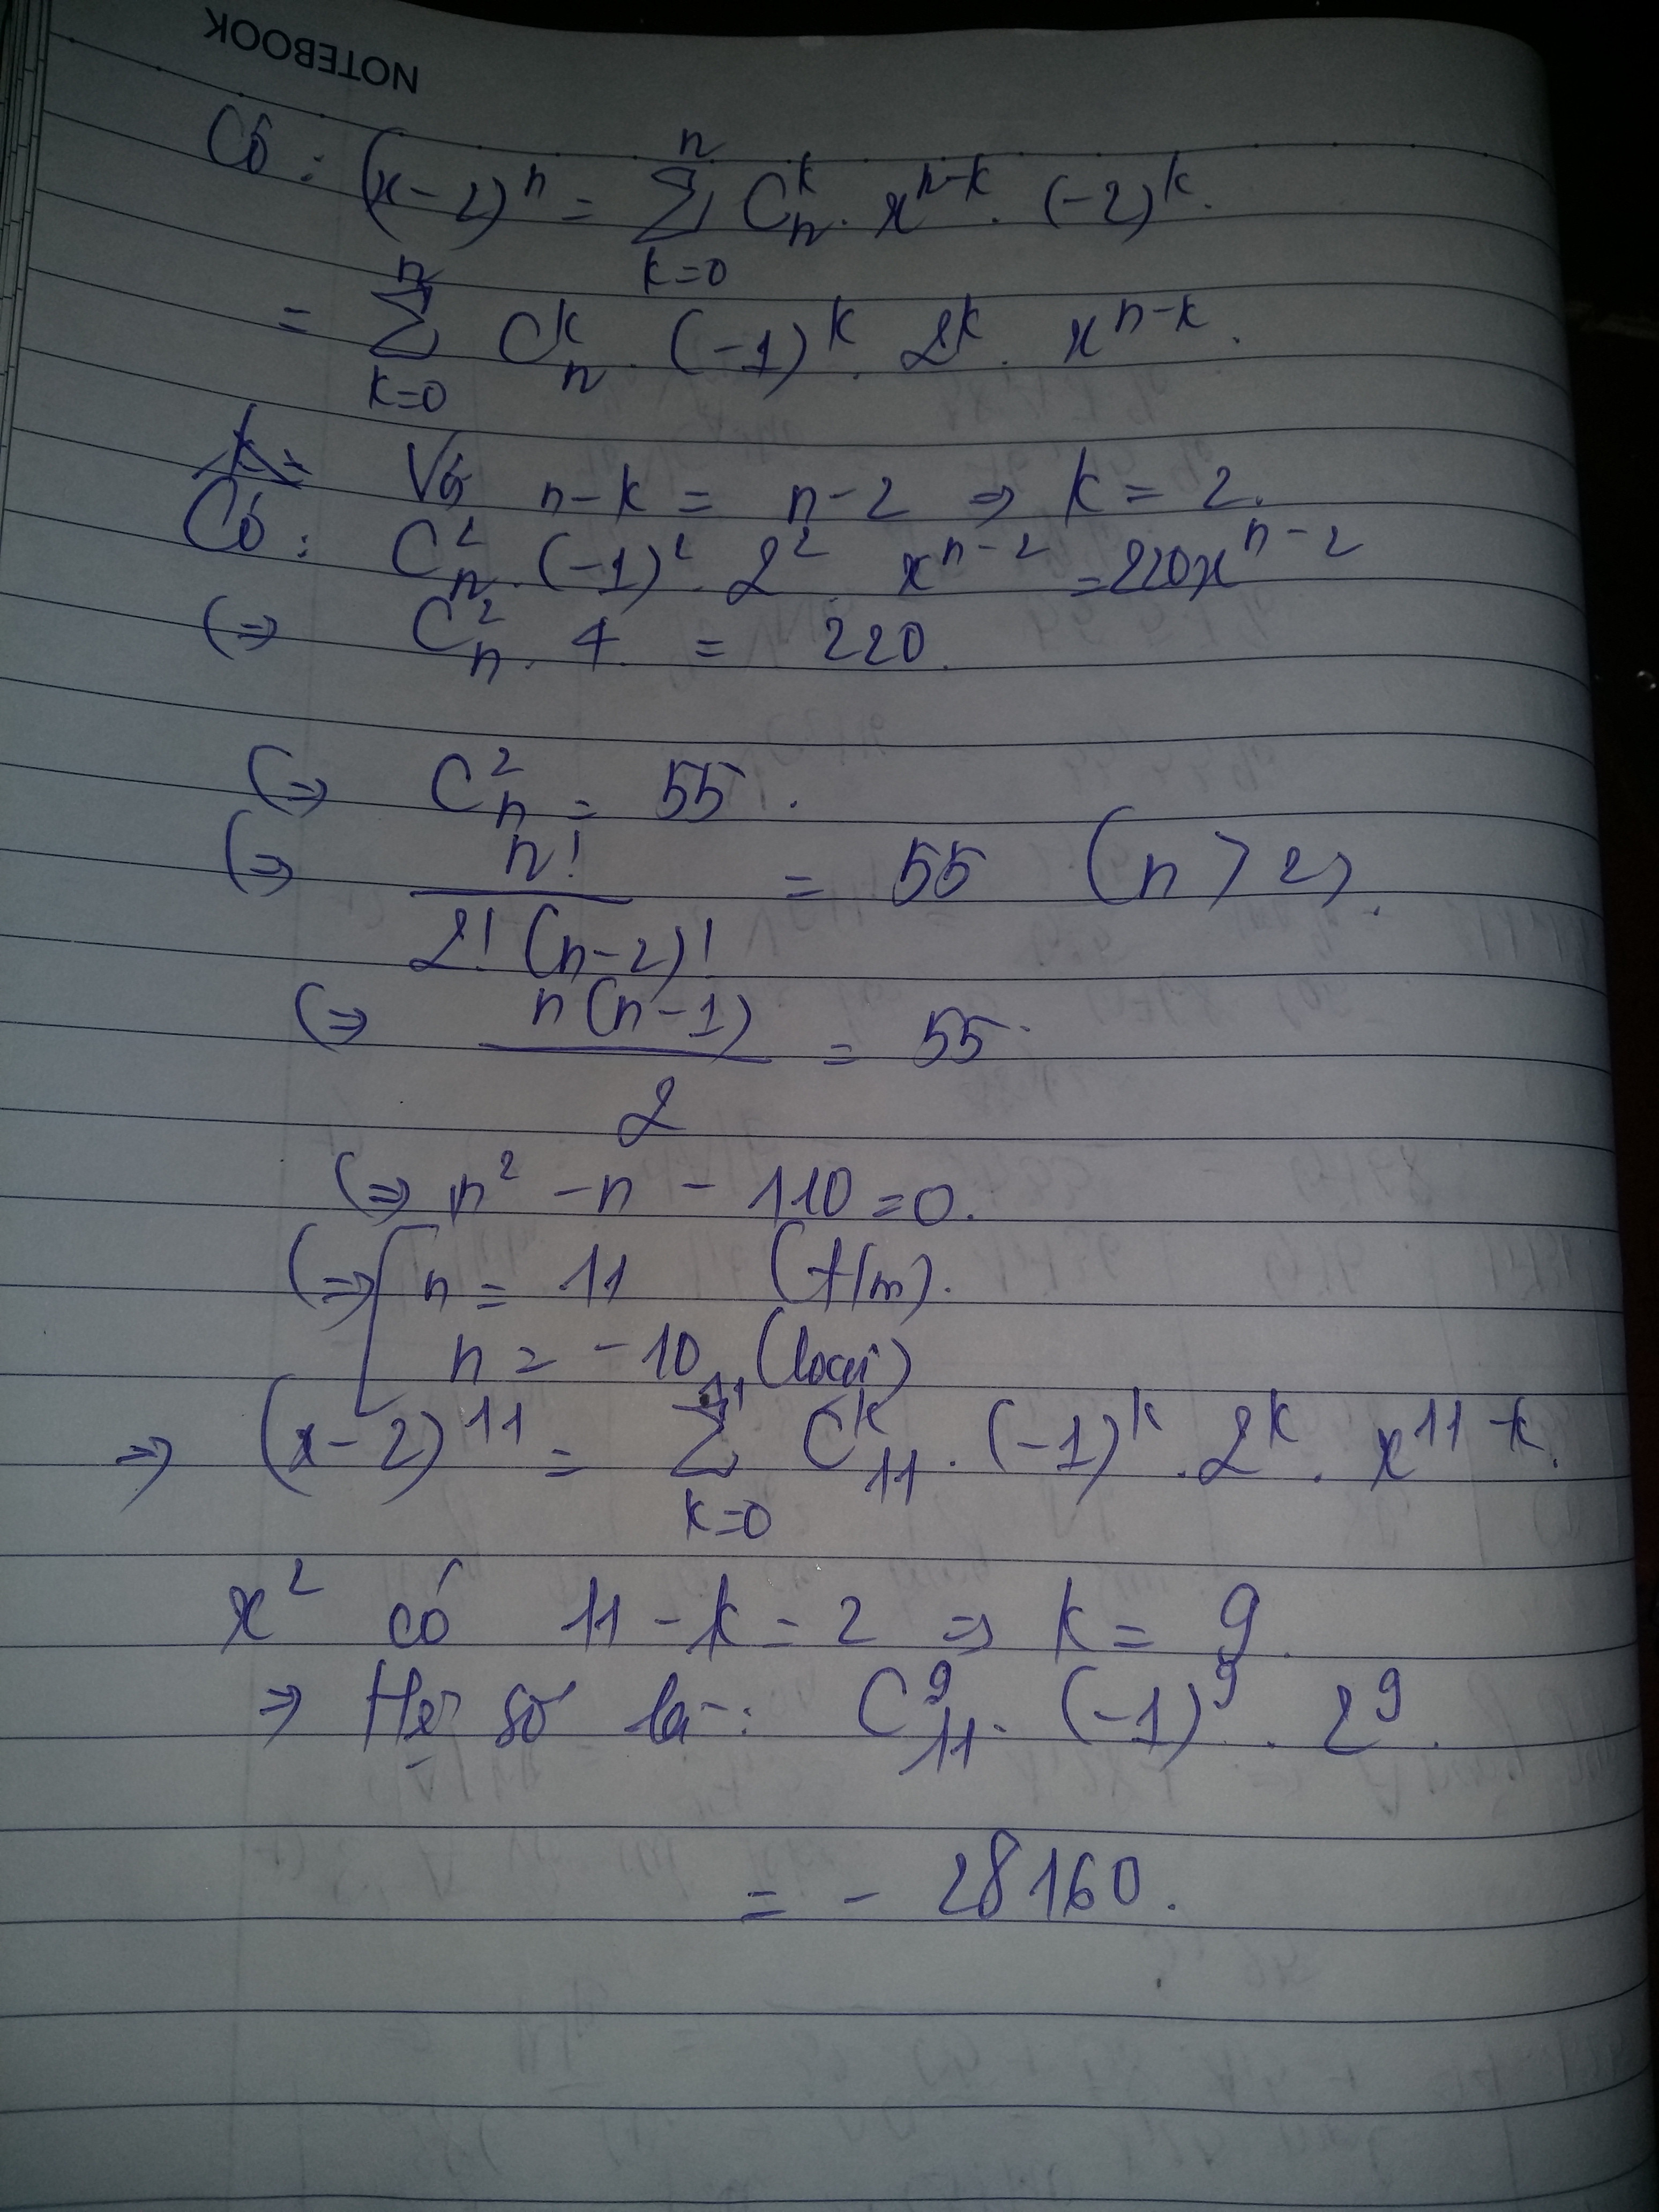 NOTEBOOK
Có : (x-2)^n = \sum_{k=0}^{n} C_n^k . x^{n-k} . (-2)^k .
= \sum_{k=0}^{n} C_n^k . (-1)^k . 2^k . x^{n-k} .
Với n-k = n-2 => k = 2.
Có : C_n^2 . (-1)^2 . 2^2 . x^{n-2} = 220x^{n-2}
(=> C_n^2 . 4 = 220.
(=> C_n^2 = 55 .
(=> \frac{n!}{2!(n-2)!} = 55 (n > 2).
(=> \frac{n(n-1)}{2} = 55
(=> n^2 - n - 110 = 0.
(=> [ n = 11 (t/m).
n = -10 (loại)
=> (x-2)^{11} = \sum_{k=0}^{11} C_{11}^k . (-1)^k . 2^k . x^{11-k} .
x^2 có 11-k = 2 => k = 9.
=> Hệ số là : C_{11}^9 . (-1)^9 . 2^9 .
= - 28160.